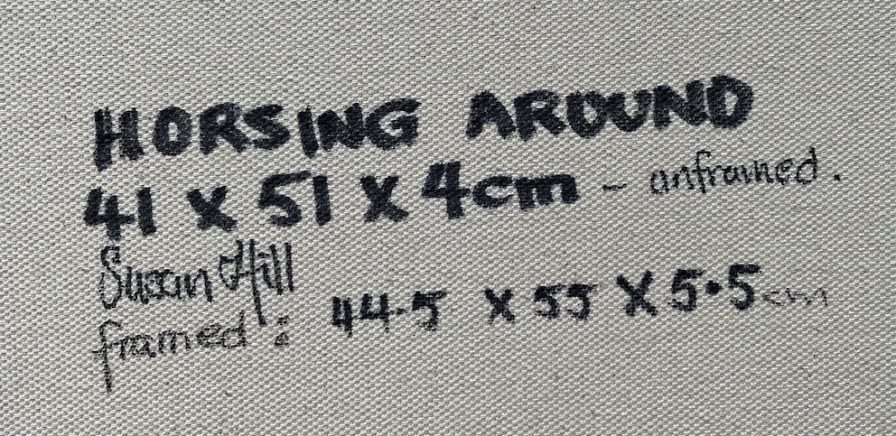 HORSING AROUND
41 x 51 x 4cm - unframed.
Susan Hill
framed : 44.5 x 55 x 5.5 cm